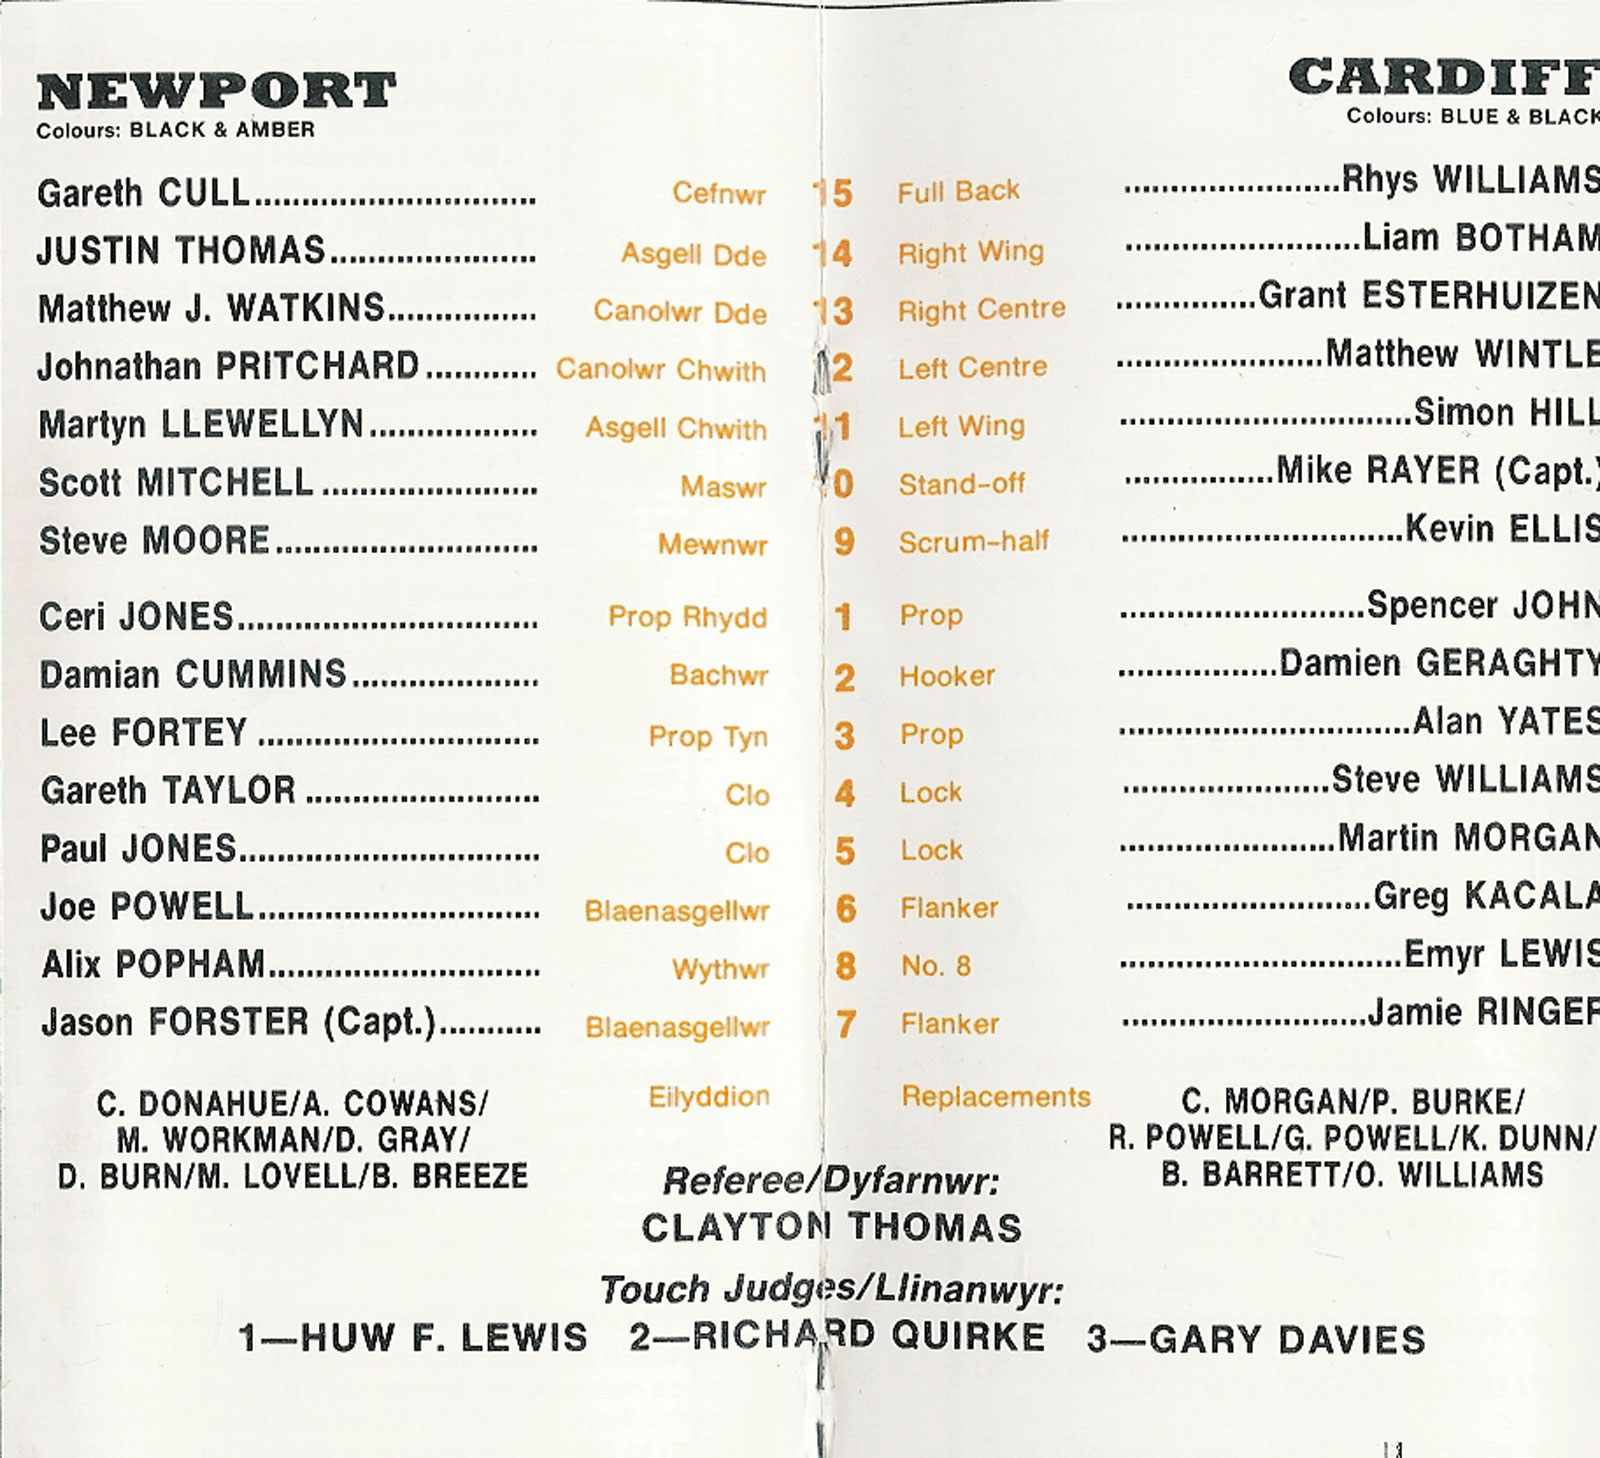 NEWPORT
Colours: BLACK & AMBER
CARDIFF
Colours: BLUE & BLACK
Gareth CULL.............................. Cefnwr 15 Full Back .......................Rhys WILLIAMS
JUSTIN THOMAS...................... Asgell Dde 14 Right Wing .........................Liam BOTHAM
Matthew J. WATKINS................ Canolwr Dde 13 Right Centre ...............Grant ESTERHUIZEN
Johnathan PRITCHARD............ Canolwr Chwith 12 Left Centre ......................Matthew WINTLE
Martyn LLEWELLYN.................. Asgell Chwith 11 Left Wing ...............................Simon HILL
Scott MITCHELL....................... Maswr 10 Stand-off ................Mike RAYER (Capt.)
Steve MOORE............................ Mewnwr 9 Scrum-half ..............................Kevin ELLIS
Ceri JONES................................ Prop Rhydd 1 Prop ..........................Spencer JOHN
Damian CUMMINS.................... Bachwr 2 Hooker .................Damien GERAGHTY
Lee FORTEY.............................. Prop Tyn 3 Prop ...............................Alan YATES
Gareth TAYLOR......................... Clo 4 Lock ......................Steve WILLIAMS
Paul JONES................................ Clo 5 Lock .......................Martin MORGAN
Joe POWELL.............................. Blaenasgellwr 6 Flanker ..........................Greg KACALA
Alix POPHAM............................. Wythwr 8 No. 8 ..............................Emyr LEWIS
Jason FORSTER (Capt.)........... Blaenasgellwr 7 Flanker ..........................Jamie RINGER
C. DONAHUE/A. COWANS/
M. WORKMAN/D. GRAY/
D. BURN/M. LOVELL/B. BREEZE
Eilyddion Replacements
C. MORGAN/P. BURKE/
R. POWELL/G. POWELL/K. DUNN/
B. BARRETT/O. WILLIAMS
Referee/Dyfarnwr:
CLAYTON THOMAS
Touch Judges/Llinanwyr:
1—HUW F. LEWIS 2—RICHARD QUIRKE 3—GARY DAVIES